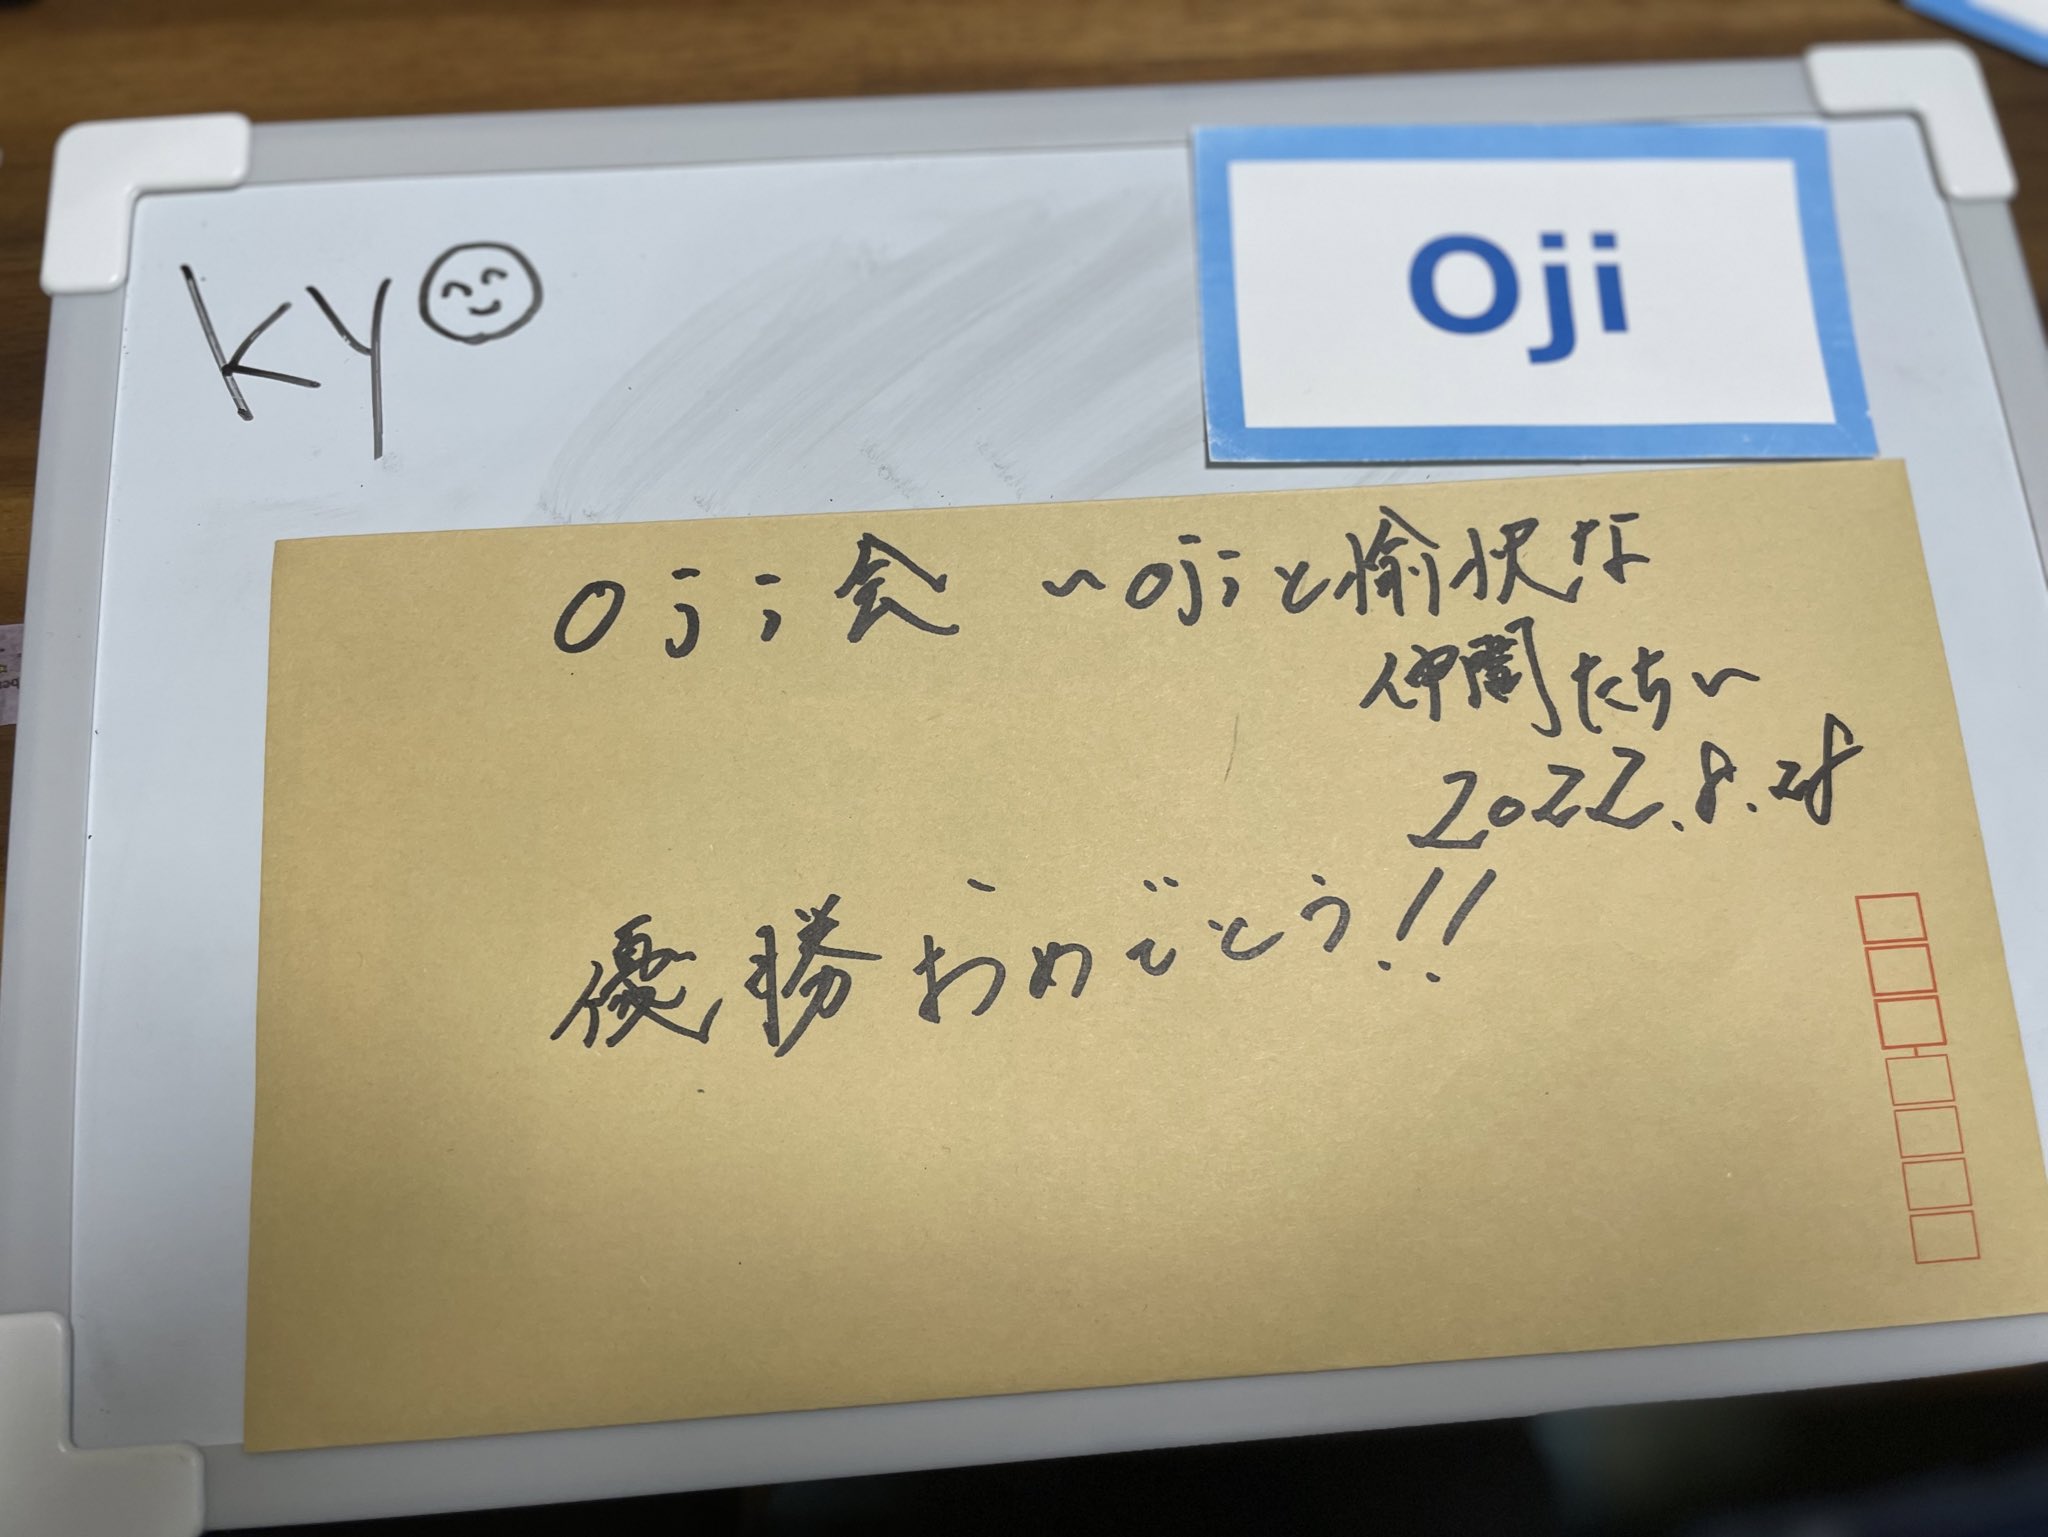 ky☺
Oji
Oji会 〜Ojiと愉快な
仲間たち〜
2022.8.28
優勝おめでとう!!